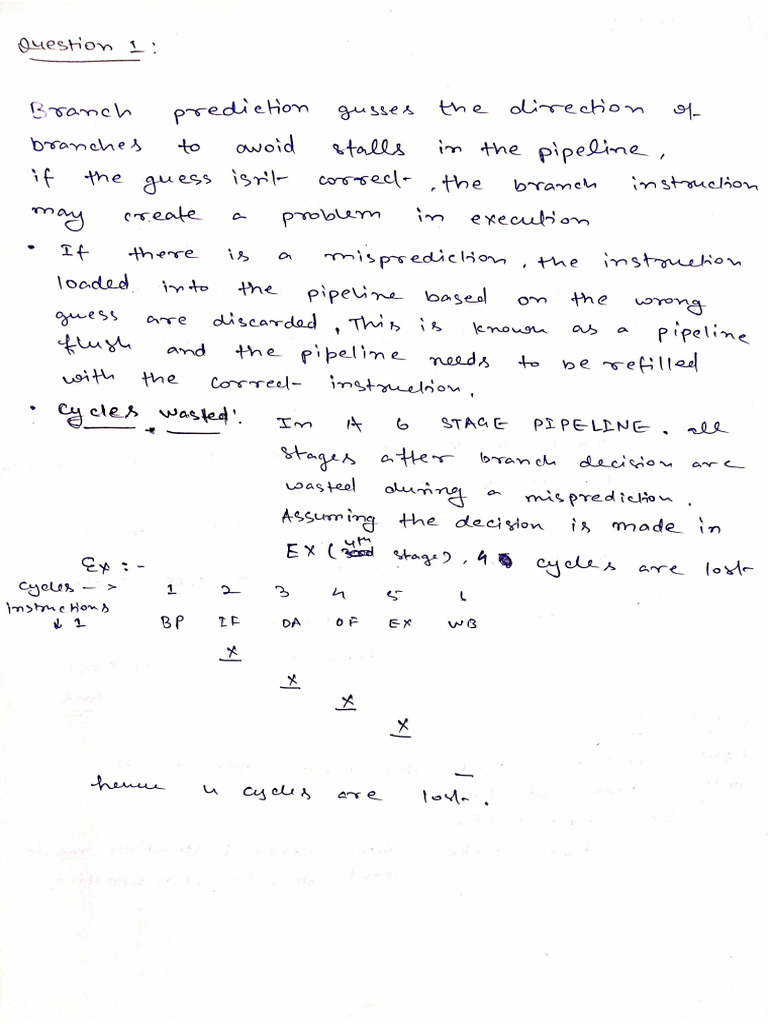 Question 1:
Branch prediction gusses the direction of
branches to avoid stalls in the pipeline,
if the guess isn't correct, the branch instruction
may create a problem in execution
• If there is a misprediction, the instruction
loaded into the pipeline based on the wrong
guess are discarded, This is known as a pipeline
flush and the pipeline needs to be refilled
with the correct instruction.
• Cycles wasted: In A 6 STAGE PIPELINE. all
stages after branch decision are
wasted during a misprediction.
Assuming the decision is made in
EX (4th stage), 4 cycles are lost
Ex :-
Cycles -> 1 2 3 4 5 6
instructions
↓ 1 BP IF DA OF EX WB
x
x
x
x
hence 4 cycles are lost.